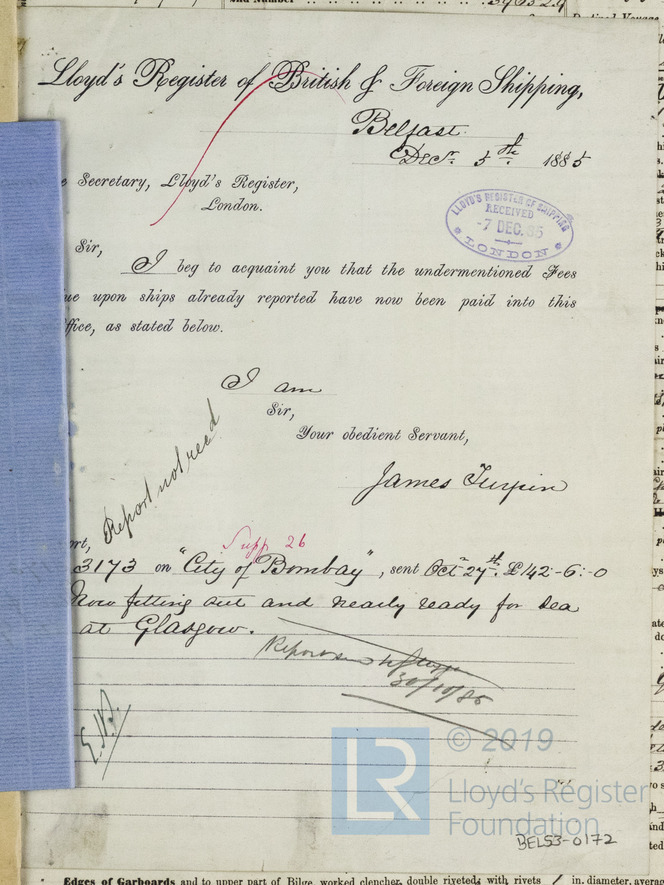 Lloyd's Register of British & Foreign Shipping,
Belfast.
Decr. 5th. 1885
e Secretary, Lloyd's Register,
London.
LLOYD'S REGISTER OF SHIPPING
RECEIVED
-7 DEC. 85
LONDON
Sir,
I beg to acquaint you that the undermentioned Fees
ue upon ships already reported have now been paid into this
ffice, as stated below.
I am
Sir,
Your obedient Servant,
James Turpin
Report not recd
rt,
Supp 26
3173 on "City of Bombay", sent Oct 27th. £142-6:-0
Now fitting out and nearly ready for sea
at Glasgow.
30/10/85
© 2019
LR
Lloyd's Register
Foundation
BEL53-0172
Edges of Garboards and to upper part of Bilge, worked clencher, double riveted; with rivets in. diameter, avera